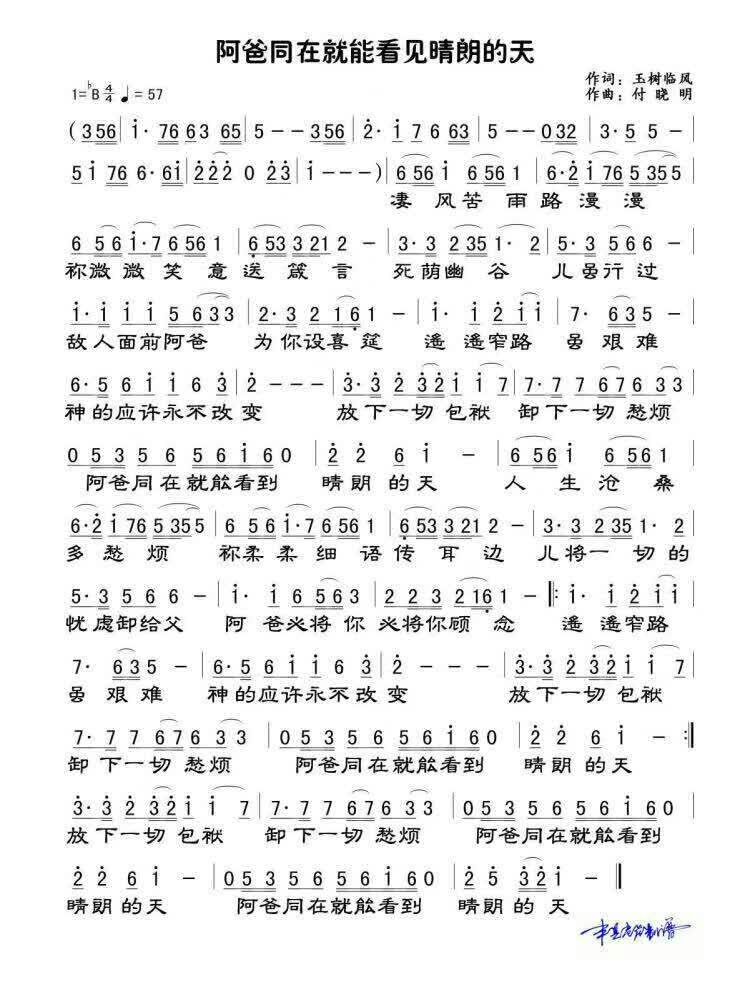 阿爸同在就能看见晴朗的天
作词：玉树临风
1=♭B 4/4 ♩=57
作曲：付晓明
(356 | i· 76 63 65 | 5 - - 356 | 2· i 76 63 | 5 - - 032 | 3· 5 - - |
5 i 76 6· 6i | 222 0 23 | i - - -) | 6 56 i 6 56 1 | 6· 2 i 76 5 35 5 |
凄风苦雨路漫漫
6 5 6 i· 7 6 56 1 | 6 53 3 21 2 - | 3· 3 2 35 1· 2 | 5· 5 6 6 - |
祢微微笑意送箴言 死荫幽谷 儿虽行过
i· i i i 5 6 3 3 | 2· 3 2 1 6 1 - | i· i 2 i i | 7· 6 3 5 - |
敌人面前阿爸 为你设喜筵 遥遥窄路 虽艰难
6· 5 6 i i 6 3 | 2 - - - | 3· 3 2 3 2 i i 7 | 7· 7 7 6 7 6 3 3 |
神的应许永不改变 放下一切包袱 卸下一切愁烦
0 5 3 5 6 5 6 i 6 0 | 2 2 6 i - | 6 56 i 6 56 1 |
阿爸同在就能看到 晴朗的天 人生沧桑
6· 2 i 76 5 35 5 | 6 5 6 i· 7 6 56 1 | 6 53 3 21 2 - | 3· 3 2 35 1· 2 |
多愁烦 祢柔柔细语传耳边 儿将一切的
5· 3 5 6 6 - | i· i 6 5 6 3 | 2 3 2 2 16 1 - |: i· i 2 i i |
忧虑卸给父 阿爸必将你必将你顾念 遥遥窄路
7· 6 3 5 - | 6· 5 6 i i 6 3 | 2 - - - | 3· 3 2 3 2 i i 7 |
虽艰难 神的应许永不改变 放下一切包袱
7· 7 7 6 7 6 3 3 | 0 5 3 5 6 5 6 i 6 0 | 2 2 6 i - :|
卸下一切愁烦 阿爸同在就能看到 晴朗的天
3· 3 2 3 2 i i 7 | 7· 7 7 6 7 6 3 3 | 0 5 3 5 6 5 6 i 6 0 |
放下一切包袱 卸下一切愁烦 阿爸同在就能看到
2 2 6 i - | 0 5 3 5 6 5 6 i 6 0 | 2 5 3 2 i - ‖
晴朗的天 阿爸同在就能看到 晴朗的天